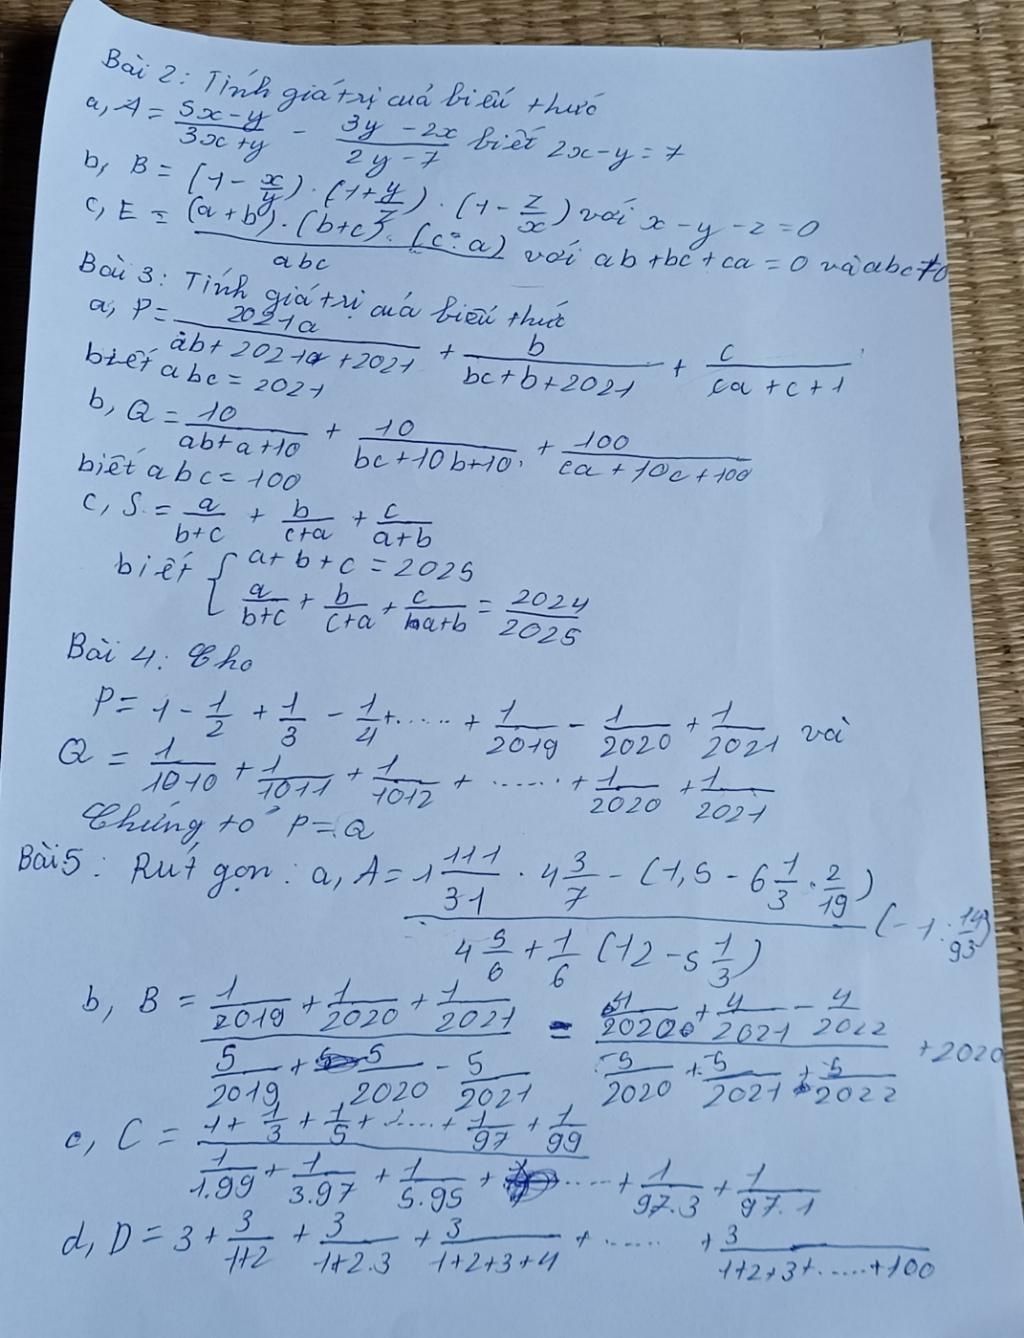 Bài 2: Tính giá trị cuả biểu thức
a, A = (5x-y)/(3x+y) - (3y-2x)/(2y-7) biết 2x-y=7
b, B = (1-x/y).(1+y/z).(1-z/x) với x-y-z=0
c, E = ((a+b).(b+c).(c+a))/(abc) với ab+bc+ca=0 và abc≠0
Bài 3: Tính giá trị cuả biểu thức
a, P = 2021a/(ab+2021a+2021) + b/(bc+b+2021) + c/(ca+c+1)
biết abc=2021
b, Q = 10/(ab+a+10) + 10/(bc+10b+10) + 100/(ca+10c+100)
biết abc=100
c, S = a/(b+c) + b/(c+a) + c/(a+b)
biết { a+b+c=2025
a/(b+c) + b/(c+a) + c/(a+b) = 2024/2025
Bài 4: Cho
P = 1 - 1/2 + 1/3 - 1/4 + ..... + 1/2019 - 1/2020 + 1/2021 và
Q = 1/1010 + 1/1011 + 1/1012 + ...... + 1/2020 + 1/2021
Chứng tỏ P=Q
Bài 5: Rút gọn: a, A = (1 111/31 . 4 3/7 - (1,5 - 6 1/3 . 2/19))/(4 5/6 + 1/6 (12 - 5 1/3)) (-1 : 14/93)
b, B = (1/2019 + 1/2020 + 1/2021)/(5/2019 + 5/2020 - 5/2021) - (4/2020 + 4/2021 - 4/2022)/(5/2020 + 5/2021 + 5/2022) + 2020
c, C = (1 + 1/3 + 1/5 + ..... + 1/97 + 1/99)/(1/1.99 + 1/3.97 + 1/5.95 + .... + 1/97.3 + 1/97.1)
d, D = 3 + 3/(1+2) + 3/(1+2.3) + 3/(1+2+3+4) + ...... + 3/(1+2+3+.....+100)